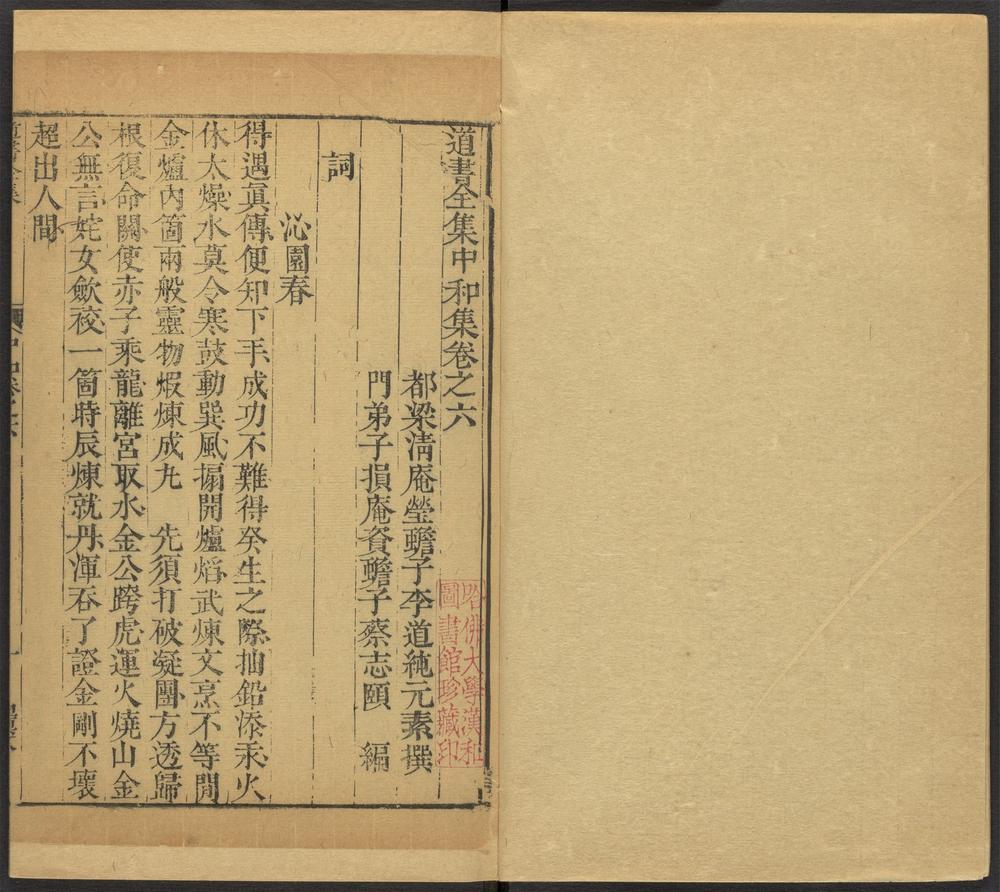 道書全集中和集卷之六
都梁清庵瑩蟾子李道純元素撰
門弟子損庵寶蟾子蔡志頤 編
詞
沁園春
得遇眞傳便知下手成功不難得癸生之際抽鉛添汞火
休太燥水莫令寒鼓動巽風搧開爐熖武煉文烹不等閒
金爐內箇兩般靈物煆煉成丸 先須打破凝團方透歸
根復命關使赤子乘龍離宮取水金公跨虎運火燒山金
公無言姹女歛袂一箇時辰煉就丹渾吞了證金剛不壞
超出人間
哈佛大學漢和
圖書館珍藏印